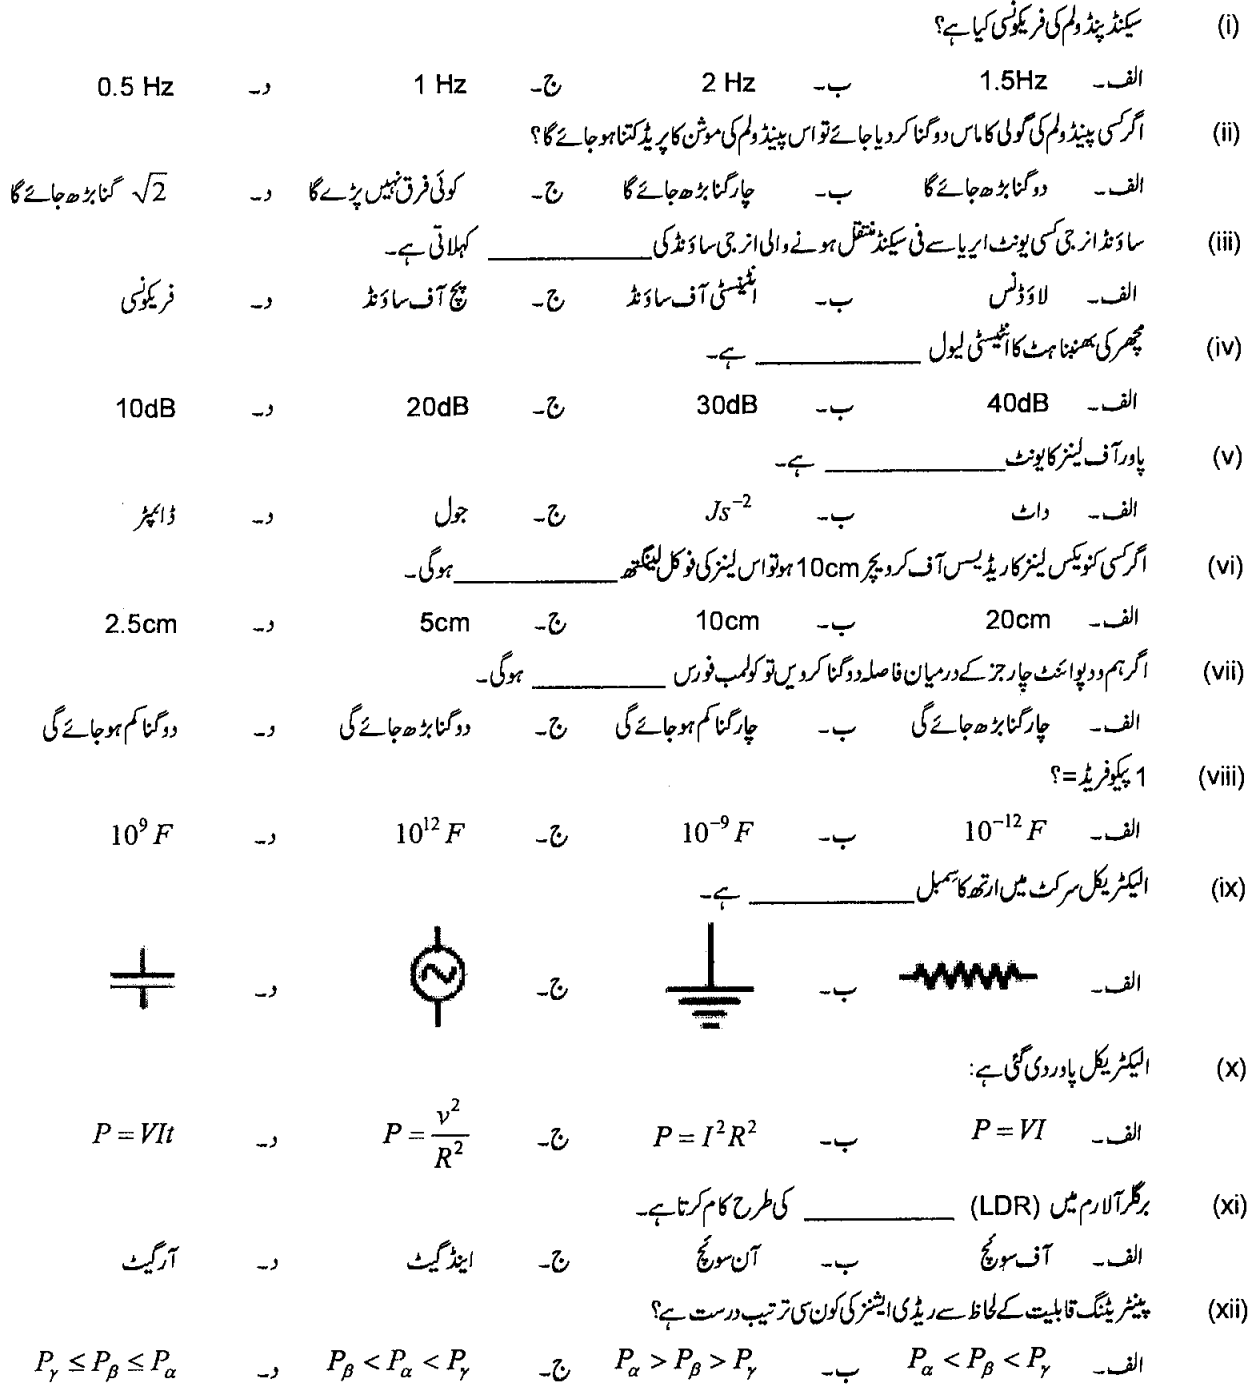 (i) سیکنڈ پنڈولم کی فریکونسی کیا ہے؟
الف۔ 1.5Hz ب۔ 2 Hz ج۔ 1 Hz د۔ 0.5 Hz
(ii) اگر کسی پینڈولم کی گولی کا ماس دوگنا کر دیا جائے تو اس پینڈولم کی موشن کا پریڈ کتنا ہو جائے گا؟
الف۔ دوگنا بڑھ جائے گا ب۔ چار گنا بڑھ جائے گا ج۔ کوئی فرق نہیں پڑے گا د۔ √2 گنا بڑھ جائے گا
(iii) ساؤنڈ انرجی کسی یونٹ ایریا سے فی سیکنڈ منتقل ہونے والی انرجی ساؤنڈ کی ____________ کہلاتی ہے۔
الف۔ لاؤڈنس ب۔ انٹینسٹی آف ساؤنڈ ج۔ پچ آف ساؤنڈ د۔ فریکونسی
(iv) مچھر کی بھنبناہٹ کا انٹیسٹی لیول ____________ ہے۔
الف۔ 40dB ب۔ 30dB ج۔ 20dB د۔ 10dB
(v) پاور آف لینز کا یونٹ ____________ ہے۔
الف۔ واٹ ب۔ Js⁻² ج۔ جول د۔ ڈائپٹر
(vi) اگر کسی کنویکس لینز کا ریڈیس آف کرویچر 10cm ہو تو اس لینز کی فوکل لینگتھ ____________ ہوگی۔
الف۔ 20cm ب۔ 10cm ج۔ 5cm د۔ 2.5cm
(vii) اگر ہم دو پوائنٹ چارجز کے درمیان فاصلہ دوگنا کر دیں تو کولمب فورس ____________ ہوگی۔
الف۔ چار گنا بڑھ جائے گی ب۔ چار گنا کم ہو جائے گی ج۔ دوگنا بڑھ جائے گی د۔ دوگنا کم ہو جائے گی
(viii) 1 پیکوفریڈ=؟
الف۔ 10⁻¹² F ب۔ 10⁻⁹ F ج۔ 10¹² F د۔ 10⁹ F
(ix) الیکٹریکل سرکٹ میں ارتھ کا سِمبل ____________ ہے۔
الف۔ ب۔ ج۔ د۔
(x) الیکٹریکل پاور دی گئی ہے:
الف۔ P = VI ب۔ P = I²R² ج۔ P = v²/R² د۔ P = VIt
(xi) برگلر آلارم میں (LDR) ____________ کی طرح کام کرتا ہے۔
الف۔ آف سوئچ ب۔ آن سوئچ ج۔ اینڈ گیٹ د۔ آر گیٹ
(xii) پینٹریٹنگ قابلیت کے لحاظ سے ریڈی ایشنز کی کون سی ترتیب درست ہے؟
الف۔ Pα < Pβ < Pγ ب۔ Pα > Pβ > Pγ ج۔ Pβ < Pα < Pγ د۔ Pγ ≤ Pβ ≤ Pα